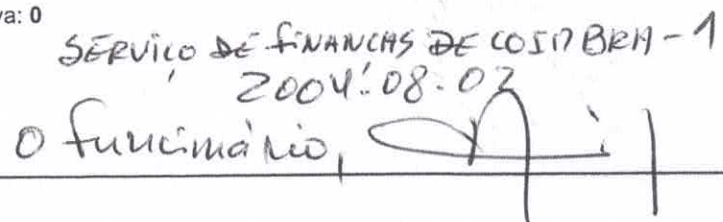 va: 0
SERVIÇO DE FINANCAS DE COIMBRA - 1
2004.08.02
O funcionário,